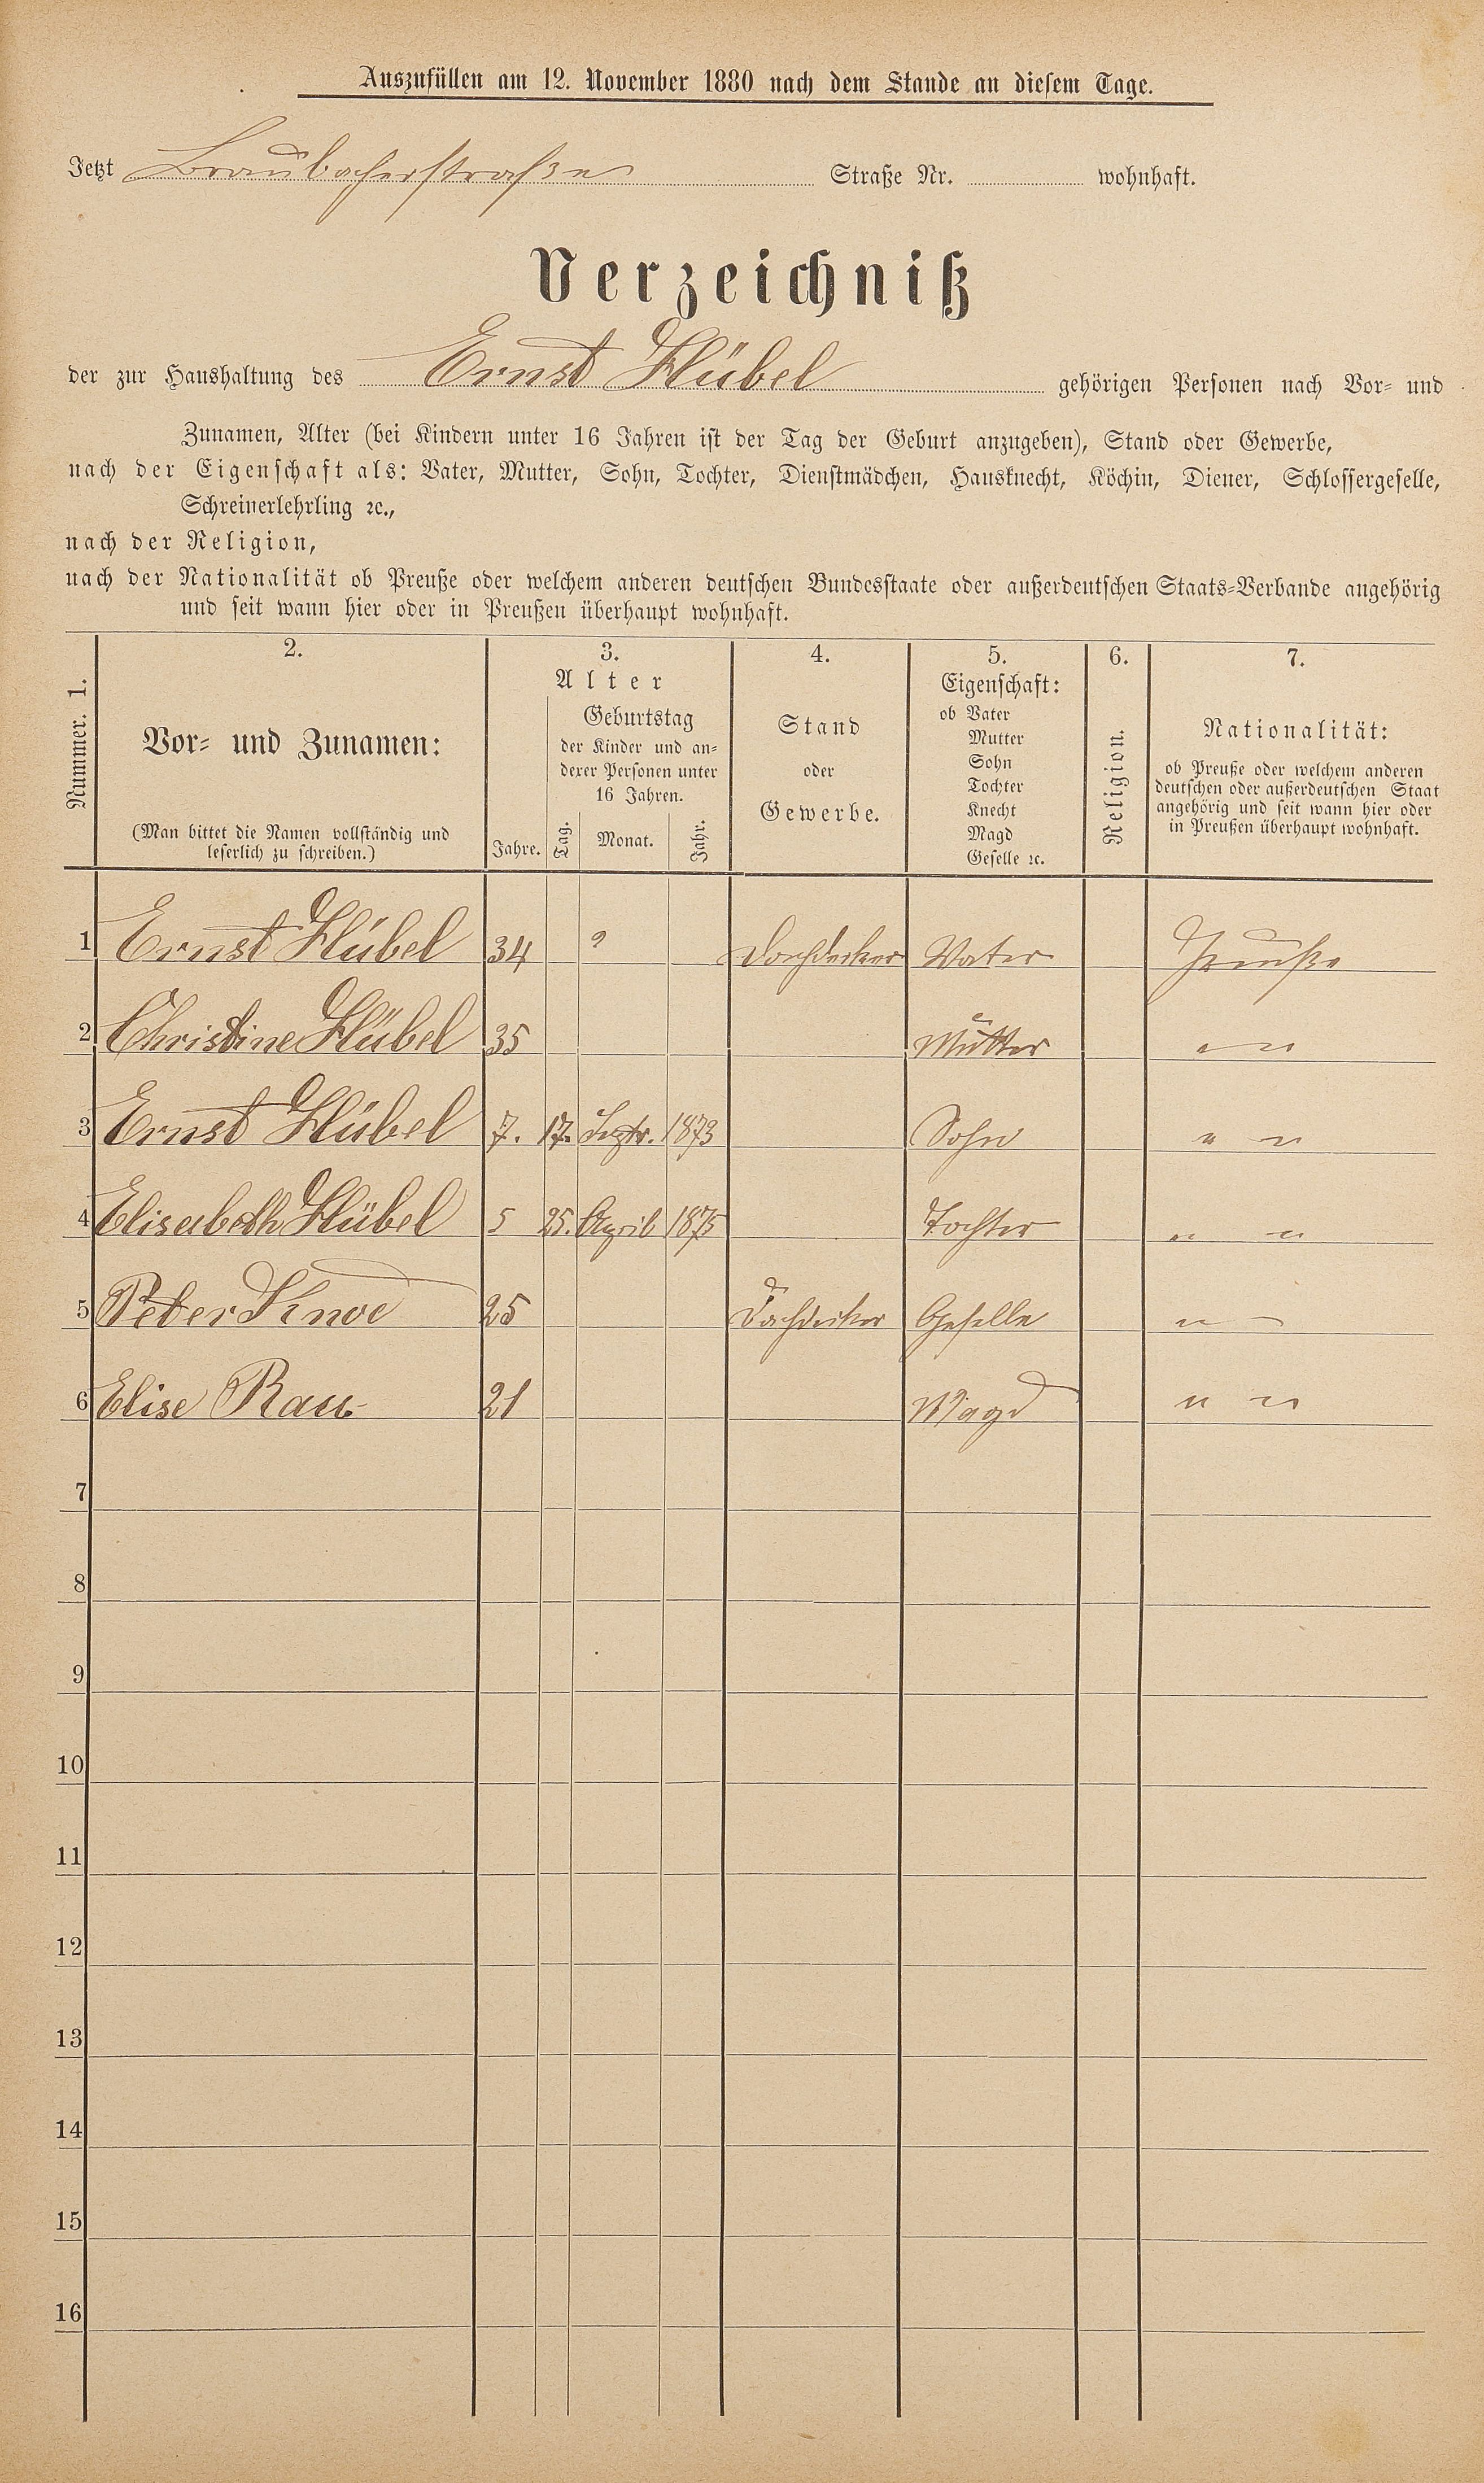 Auszufüllen am 12. November 1880 nach dem Stande an diesem Tage.
Jetzt Braubacherstraße Straße Nr. wohnhaft.
Verzeichniß
der zur Haushaltung des Ernst Hübel gehörigen Personen nach Vor- und
Zunamen, Alter (bei Kindern unter 16 Jahren ist der Tag der Geburt anzugeben), Stand oder Gewerbe,
nach der Eigenschaft als: Vater, Mutter, Sohn, Tochter, Dienstmädchen, Hausknecht, Köchin, Diener, Schlossergeselle,
Schreinerlehrling ꝛc.,
nach der Religion,
nach der Nationalität ob Preuße oder welchem anderen deutschen Bundesstaate oder außerdeutschen Staats-Verbande angehörig
und seit wann hier oder in Preußen überhaupt wohnhaft.
Nummer. 1.
2.
Vor- und Zunamen:
(Man bittet die Namen vollständig und
leserlich zu schreiben.)
3.
Alter
Jahre.
Geburtstag
der Kinder und an-
derer Personen unter
16 Jahren.
Tag. Monat. Jahr.
4.
Stand
oder
Gewerbe.
5.
Eigenschaft:
ob Vater
Mutter
Sohn
Tochter
Knecht
Magd
Geselle ꝛc.
6.
Religion.
7.
Nationalität:
ob Preuße oder welchem anderen
deutschen oder außerdeutschen Staat
angehörig und seit wann hier oder
in Preußen überhaupt wohnhaft.
1 Ernst Hübel 34 Dachdecker Vater Preuße
2 Christine Hübel 35 Mutter " "
3 Ernst Hübel 7. 17. Septr. 1873 Sohn " "
4 Elisabeth Hübel 5 25. April 1875 Tochter " "
5 Peter 25 Dachdecker Geselle " "
6 Elise Rau 21 Magd " "
7
8
9
10
11
12
13
14
15
16